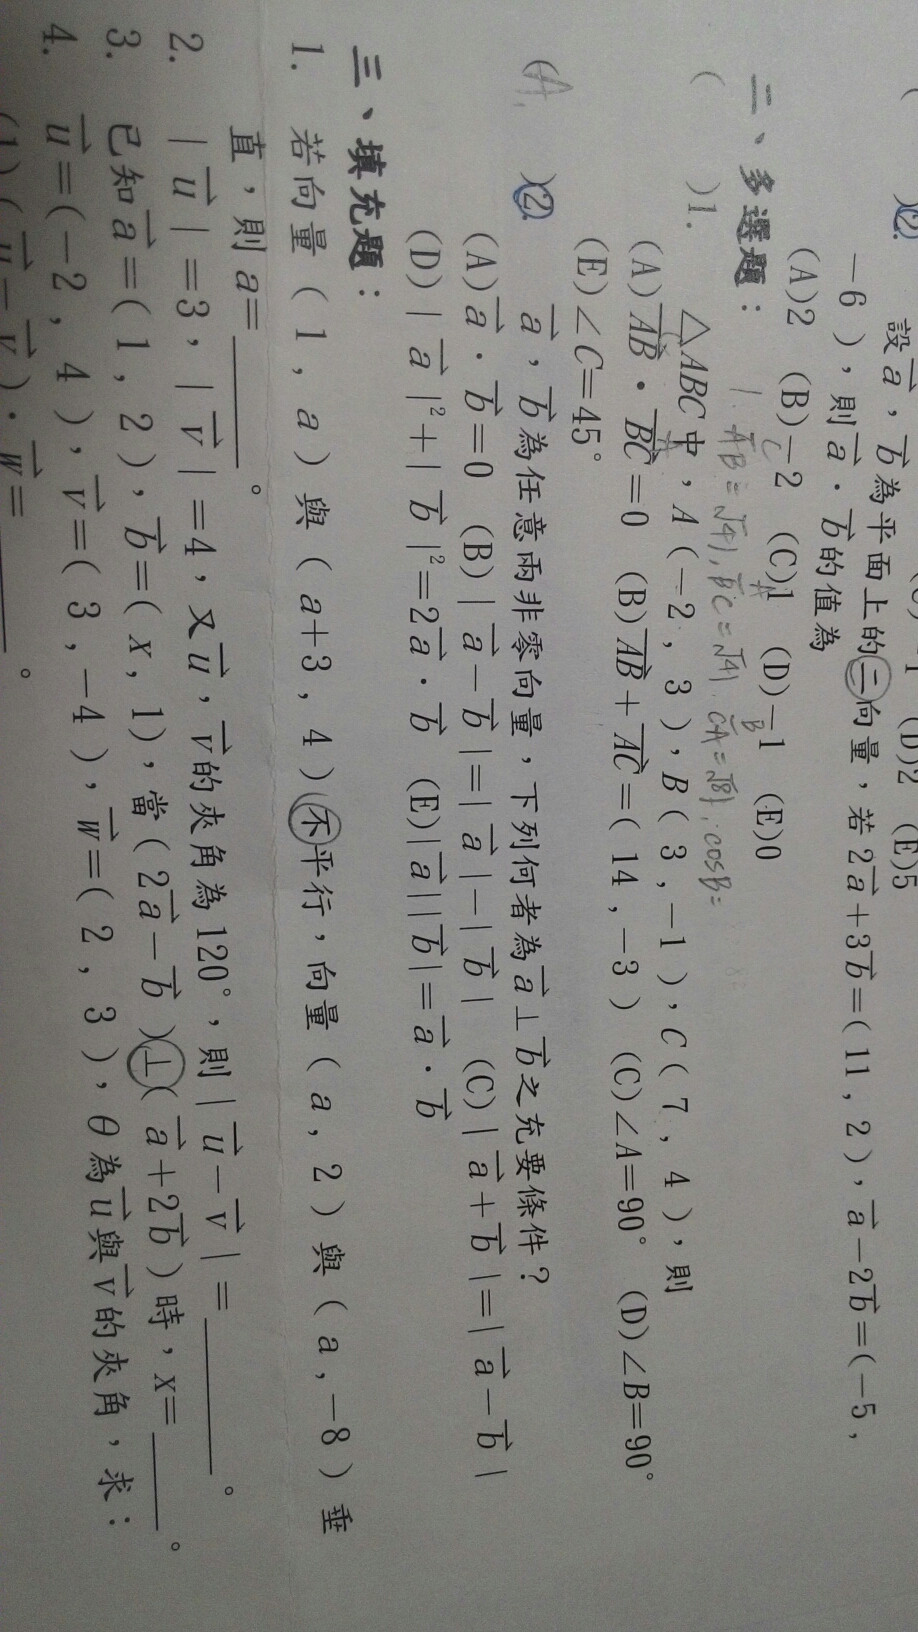 (C)-1 (D)2 (E)5
( )2. 設a⃗，b⃗為平面上的二向量，若2a⃗+3b⃗=(11，2)，a⃗-2b⃗=(-5，
-6)，則a⃗·b⃗的值為
(A)2 (B)-2 (C)1 (D)-1 (E)0
二、多選題：
1. A̅B̅=√41, B̅C̅=√41. C̅A̅=√81. cosB=
( )1. △ABC中，A(-2，3)，B(3，-1)，C(7，4)，則
(A)AB⃗·BC⃗=0 (B)AB⃗+AC⃗=(14，-3) (C)∠A=90° (D)∠B=90°
(E)∠C=45°
(A, )2. a⃗，b⃗為任意兩非零向量，下列何者為a⃗⊥b⃗之充要條件？
(A)a⃗·b⃗=0 (B)|a⃗-b⃗|=|a⃗|-|b⃗| (C)|a⃗+b⃗|=|a⃗-b⃗|
(D)|a⃗|²+|b⃗|²=2a⃗·b⃗ (E)|a⃗||b⃗|=a⃗·b⃗
三、填充題：
1. 若向量(1，a)與(a+3，4)不平行，向量(a，2)與(a，-8)垂
直，則a=______。
2. |u⃗|=3，|v⃗|=4，又u⃗，v⃗的夾角為120°，則|u⃗-v⃗|=______。
3. 已知a⃗=(1，2)，b⃗=(x，1)，當(2a⃗-b⃗)⊥(a⃗+2b⃗)時，x=______。
4. u⃗=(-2，4)，v⃗=(3，-4)，w⃗=(2，3)，θ為u⃗與v⃗的夾角，求：
(1)(u⃗-v⃗)·w⃗=______。